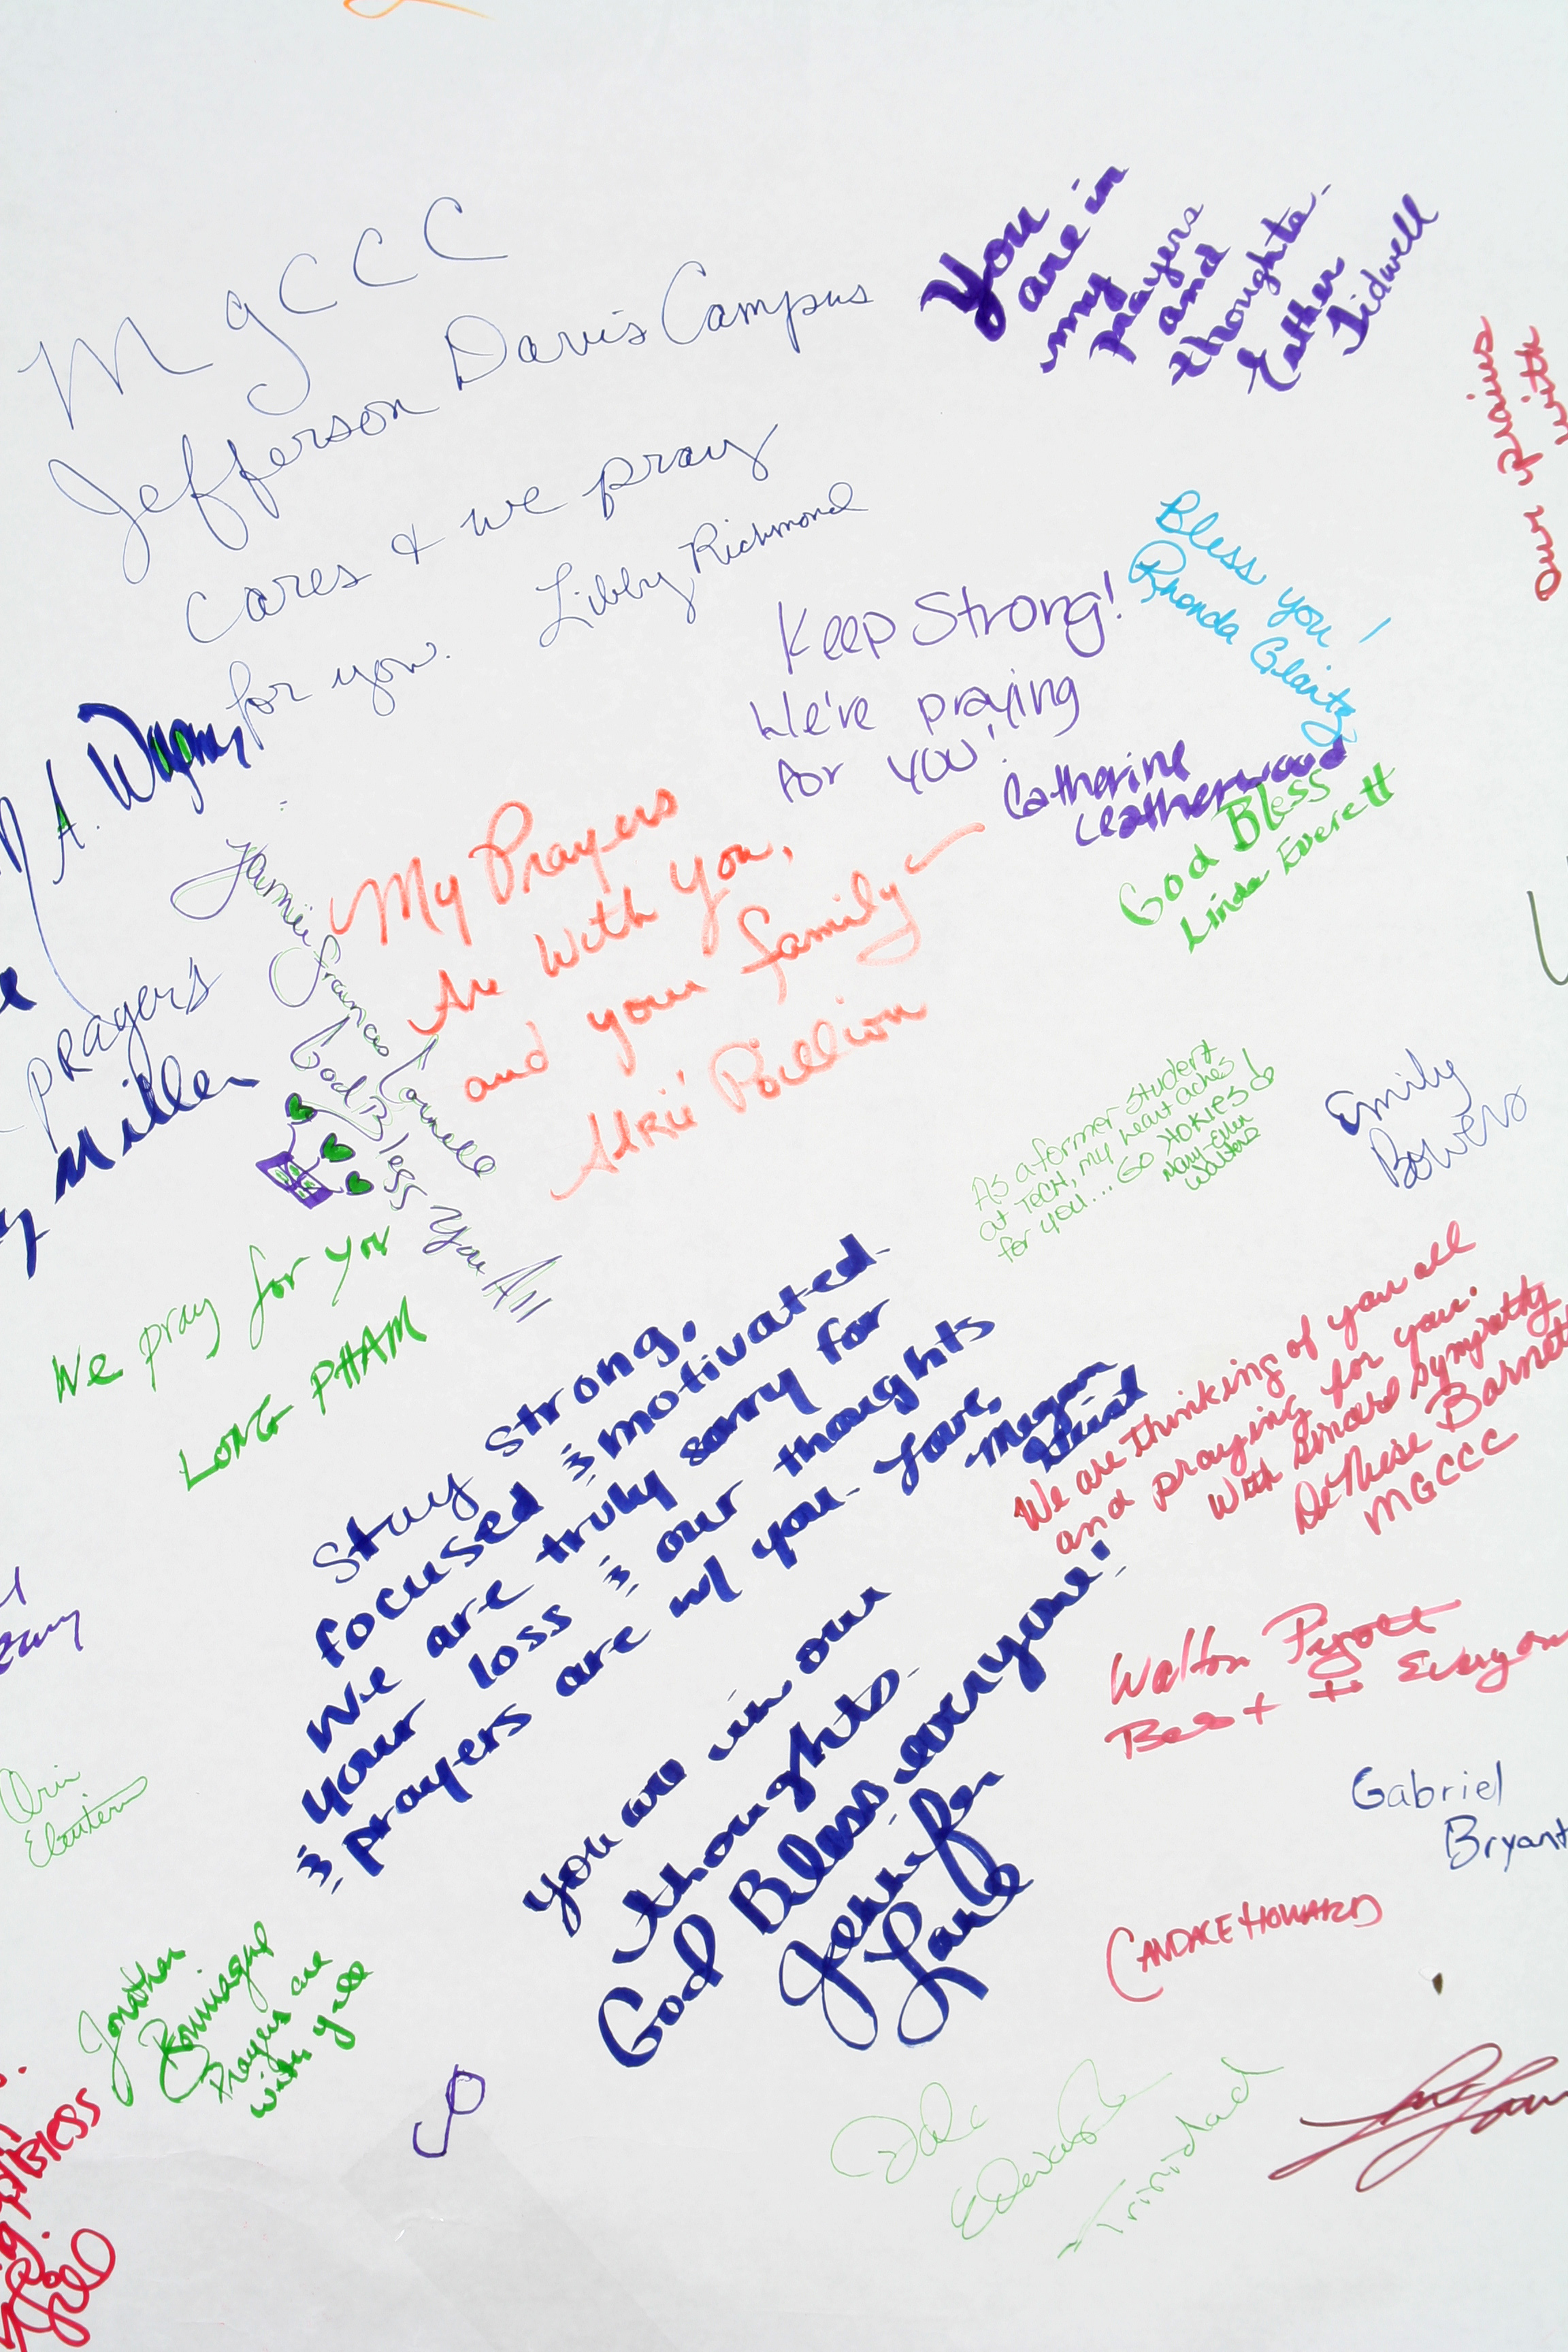 MgCCC
Jefferson Davis Campus
Cares & we pray
for you.
Libby Richmond
You
are in
my
prayers
and
thoughts -
Esther
Tidwell
our
with
Bless you!
Rhonda
Keep Strong!
We're praying
for YOU!
Catherine
Leatherwood
God Bless
Linda Everett
A.
My Prayers
Are With You,
and your family -
Jamie
God Bless You All
Prayers
Miller
As a former student
at TECH, my heart aches
for you.... GO HOKIES
Mary-Ellen
Emily
Bowers
We pray for you
LONG PHAM
Stay strong,
focused & motivated.
We are truly sorry for
your loss & our thoughts
& prayers are w/ you. Love,
Megan
We are thinking of you all
and praying for you.
With Sincere Sympathy
DeNiese Barnett
MGCCC
you are in our
thoughts.
God Bless everyone!
Jennifer
Lane
Walton
Best to
Gabriel
Bryant
CANDACE HOWARD
Jonathan
Prayers are
with y'all
Bless
Dale
Trinidad